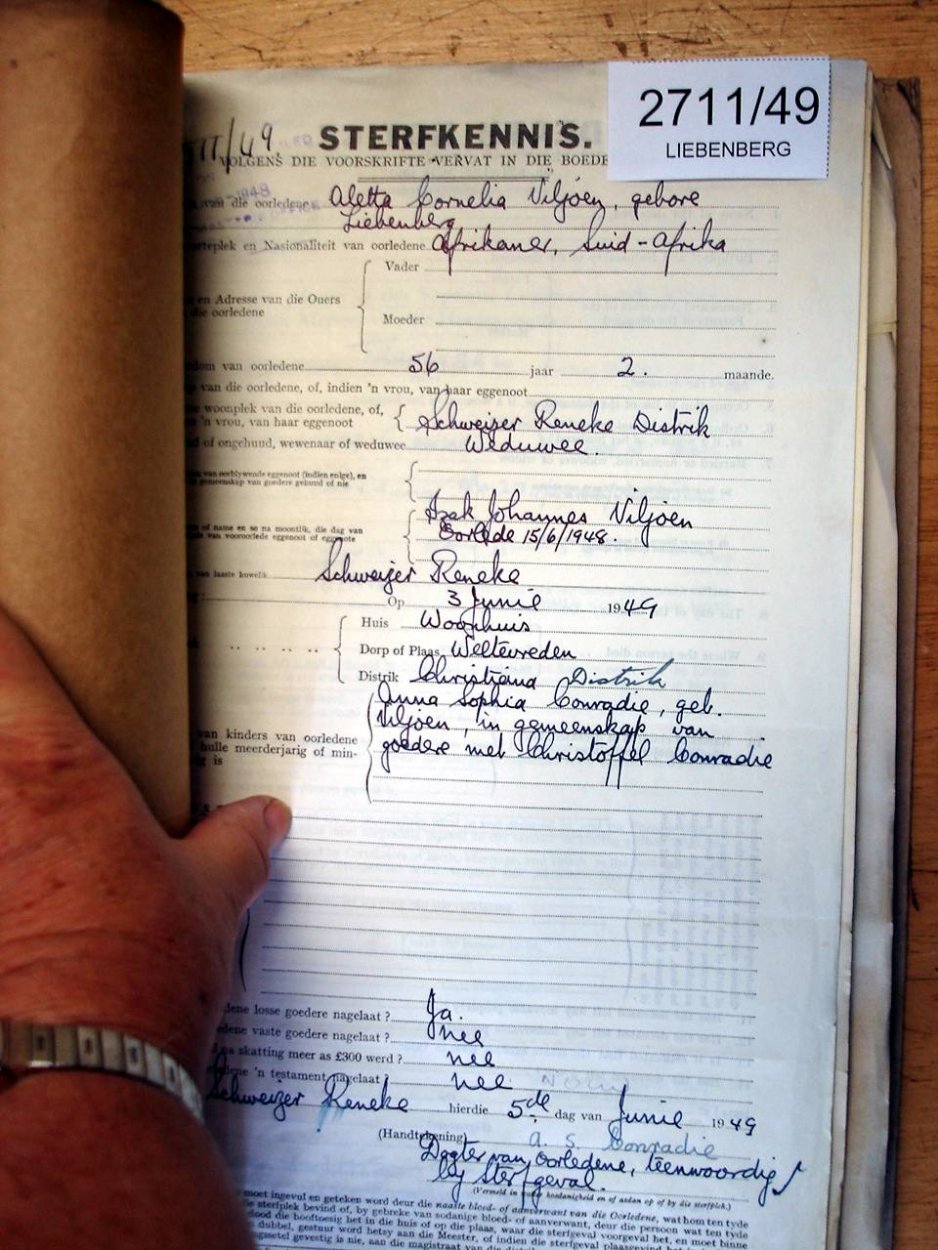 2711/49
LIEBENBERG
STERFKENNIS.
VOLGENS DIE VOORSKRIFTE VERVAT IN DIE BOEDE
van die oorledene Aletta Cornelia Viljoen, gebore
Liebenberg
en Nasionaliteit van oorledene Afrikaner, Suid-Afrika
Vader
en Adresse van die Ouers
die oorledene
Moeder
van oorledene 56 jaar 2. maande.
van die oorledene, of, indien 'n vrou, van haar eggenoot
woonplek van die oorledene, of,
'n vrou, van haar eggenoot
Schweizer Reneke Distrik
of ongehuud, wewenaar of weduwee Weduwee.
van oorblywende eggenoot (indien enige), en
gemeenskap van goedere getroud of nie
Izak Johannes Viljoen
of name en so na moontlik, die dag van
van vooroorlede eggenoot of eggenote
Oorlede 15/6/1948.
van laaste huwelik Schweizer Reneke
Op 3 Junie 1949
Huis Woonhuis
Dorp of Plaas Weltevreden
Distrik Christiana Distrik
Anna Sophia Conradie, geb.
Viljoen, in gemeenskap van
goedere met Christoffel Conradie
van kinders van oorledene
hulle meerderjarig of min-
is
losse goedere nagelaat? Ja.
vaste goedere nagelaat? nee
skatting meer as £300 werd? nee
'n testament nagelaat? nee
Schweizer Reneke hierdie 5de dag van Junie 1949
(Handtekening) A. S. Conradie
Dogter van oorledene, teenwoordig
by sterfgeval.
(Vermeld in watter hoedanigheid en of aldan op of by die sterfplek.)
moet ingevul en geteken word deur die naaste bloed- of aanverwant van die Oorledene, wat hom ten tyde
die sterfplek bevind of, by gebreke van sodanige bloed- of aanverwant, deur die persoon wat ten tyde
dood die hooftoesig het in die huis of op die plaas, waar die sterfgeval voorgeval het, en moet binne
dubbel, gestuur word hetsy aan die Meester, of indien die sterfgeval plaasgevind het
gevestig is nie, aan die magistraat van die